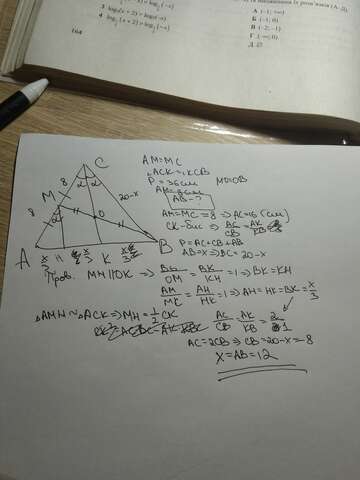 3 log₂(x + 2) > log₂(-x)
4
А (-1; +∞)
Б (-1; 0)
В (-2; -1)
Г (-∞; 0)
Д ∅
164
C
α α
M
8
8
20-x
O
A
H
K
B
AM = MC
∠ACK = ∠KCB
P = 36 см
MO=OB
AB - ?
AM = MC = 8 ⇒ AC = 16 (см)
CK - бис ⇒ AC/CB = AK/KB
P = AC + CB + AB
AB = x ⇒ BC = 20 - x
Пров. MH || OK ⇒ BO/OM = BK/KH = 1 ⇒ BK = KH
AM/MC = AH/HK = 1 ⇒ AH = HK = BK = x/3
△AMH ~ △ACK ⇒ MH = 1/2 CK
AC/CB = AK/KB = 2/1
AC = 2CB ⇒ CB = 20 - x = 8
X = AB = 12